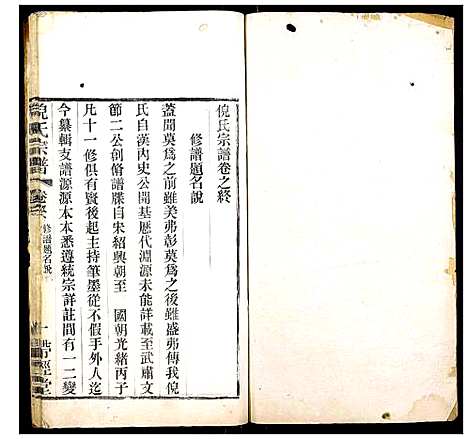 倪氏宗譜卷之終
修譜題名說
蓋聞莫爲之前雖美弗彰莫爲之後雖盛弗傳我倪
氏自漢內史公開基歷代淵源未能詳載至武肅文
節二公創脩譜牒自宋紹興朝至　國朝光緒丙子
凡十一修俱有賢後起主持筆墨從不假手外人迄
今纂輯支譜源源本本悉遵統宗詳註間有一二變
倪氏宗譜
卷終
修譜題名說
一
經堂